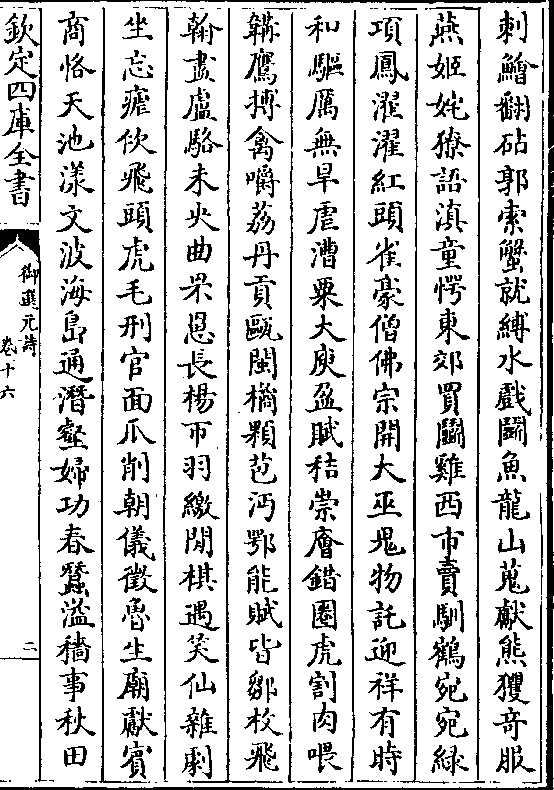 刺鱠翻砧郭索蟹就縛水戲鬭魚龍山蒐獻熊玃竒服
燕姬姹獠語滇童愕東郊買鬭雞西市賣馴鶴宛宛緑
項鳳濯濯紅頭雀豪僧佛宗開大巫鬼物託迎祥有時
和驅厲無旱虐漕粟大庾盈賦秸崇廥錯圈虎割肉喂
鞲鷹搏禽嚼荔丹貢甌閩橘顆苞沔鄂能賦皆鄒枚飛
翰盡盧駱未央曲罘罳長楊帀羽繳閒棋遇笑仙雜劇
坐忘瘧佽飛頭虎毛刑官面爪削朝儀徵魯生廟獻賓
商恪天池漾文波海島通潛壑婦功春蠶溢穡事秋田
欽定四庫全書
御選元詩
卷十六
二